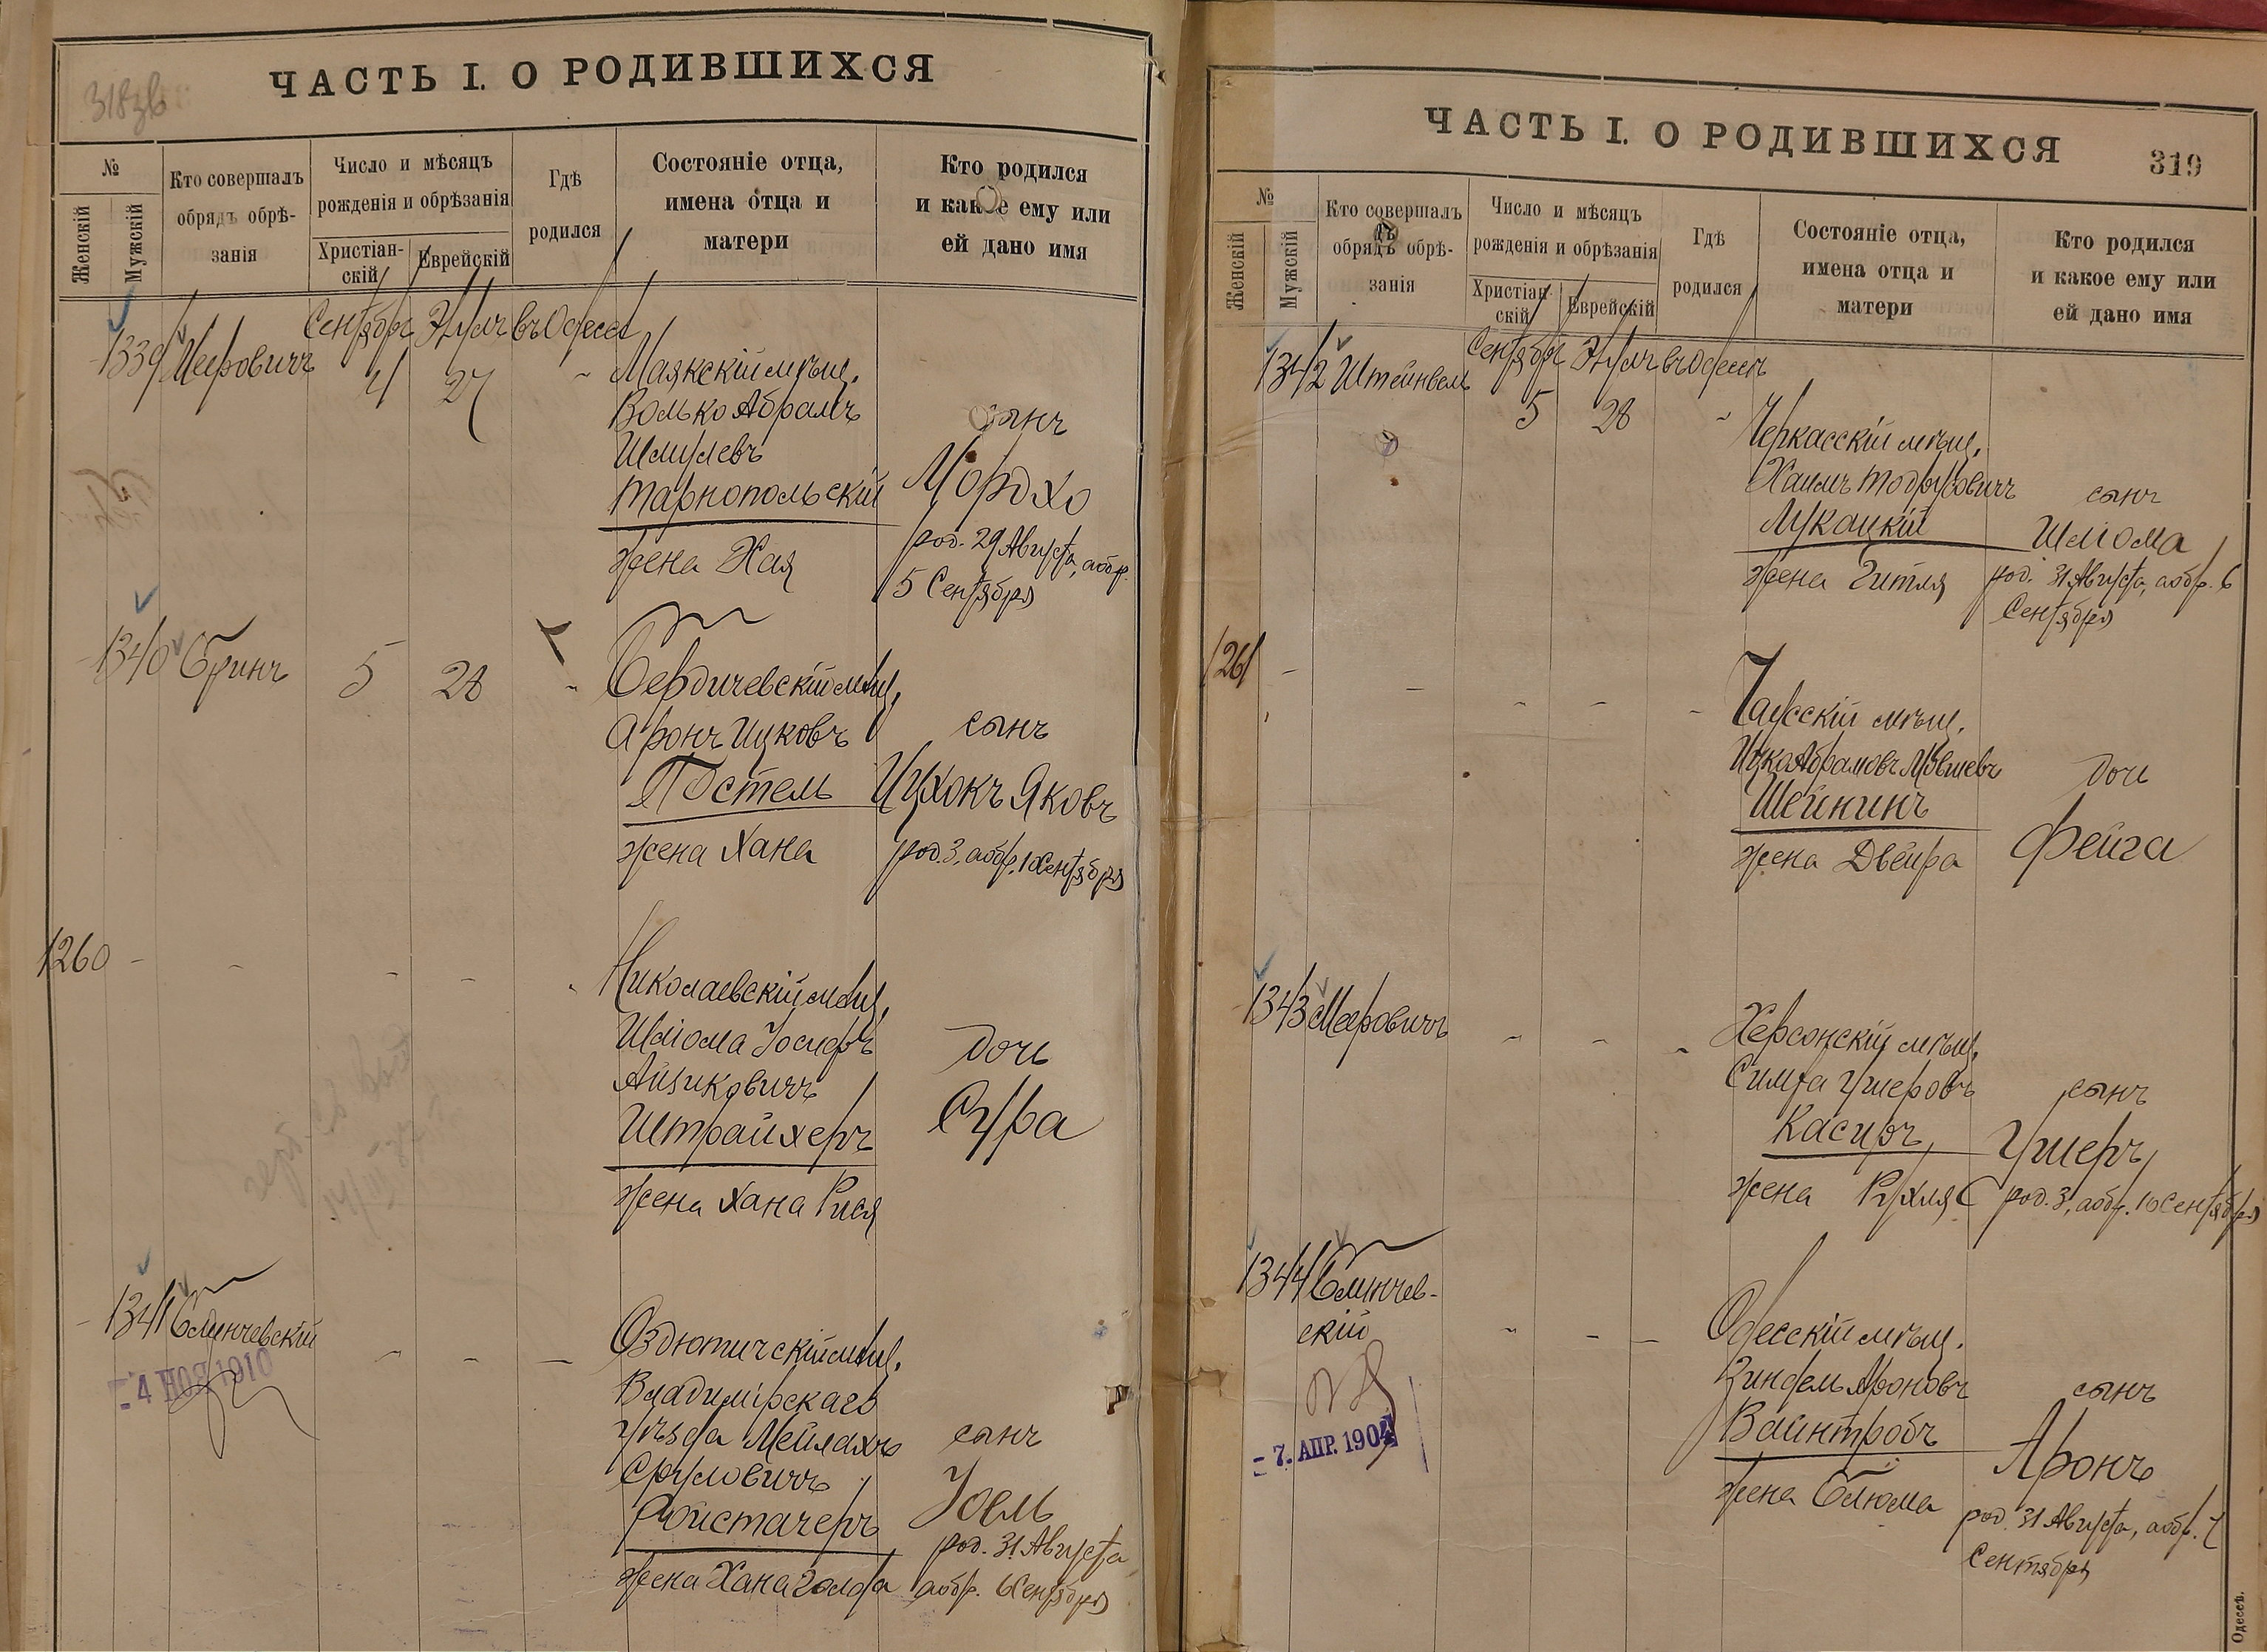 318зв
ЧАСТЬ I. О РОДИВШИХСЯ
№
Женскій
Мужскій
Кто совершалъ
обрядъ обрѣ-
занія
Число и мѣсяцъ
рожденія и обрѣзанія
Христіан-
скій
Еврейскій
Гдѣ
родился
Состояніе отца,
имена отца и
матери
Кто родился
и какое ему или
ей дано имя
1339 Мееровичъ Сентября 4 Элулъ 27 въ Одессѣ
Маякскій мѣщ.
Волько Абрамъ
Шмулевъ
Тарнопольскій
жена Хая
сынъ
Мордхо
род. 29 Августа, а обр.
5 Сентября
1340 Бринъ 5 28 -
Бердичевскій мѣщ.
Аронъ Ицковъ
Постель
жена Хана
сынъ
Ицхокъ Яковъ
род. 3, а обр. 10 Сентября
1260 - - - - -
Николаевскій мѣщ.
Шліома Іосифъ
Айзиковичъ
Штрайхеръ
жена Хана Рися
дочь
Сура
1341 Блинчевскій - - -
- 4 НОЯ 1910
Оздютичскій мѣщ.
Владимірскаго
уѣзда Мейлахъ
Сруловичъ
Ройстачеръ
жена Хана Голда
сынъ
Іоель
род. 31 Августа
а обр. 6 Сентября
ЧАСТЬ I. О РОДИВШИХСЯ
319
№
Женскій
Мужскій
Кто совершалъ
обрядъ обрѣ-
занія
Число и мѣсяцъ
рожденія и обрѣзанія
Христіан-
скій
Еврейскій
Гдѣ
родился
Состояніе отца,
имена отца и
матери
Кто родился
и какое ему или
ей дано имя
1342 Штейнвель Сентября 5 Элулъ 28 въ Одессѣ
Черкасскій мѣщ.
Хаимъ Тодрусовичъ
Лукацкій
жена Гитля
сынъ
Шліома
род. 31 Августа, а обр. 6
Сентября
1261 - - - - -
Чаусскій мѣщ.
Ицко Абрамовъ Мовшевъ
Шейнинъ
жена Двейра
дочь
Фейга
1343 Мееровичъ - - -
Херсонскій мѣщ.
Симха Ушеровъ
Касиръ
жена Рухля
сынъ
Ушеръ
род. 3, а обр. 10 Сентября
1344 Блинчев-
скій - - -
- 7. АПР. 1904
Одесскій мѣщ.
Зиндель Ароновъ
Вайнтробъ
жена Блюма
сынъ
Аронъ
род. 31 Августа, а обр. 7
Сентября
Одессѣ.